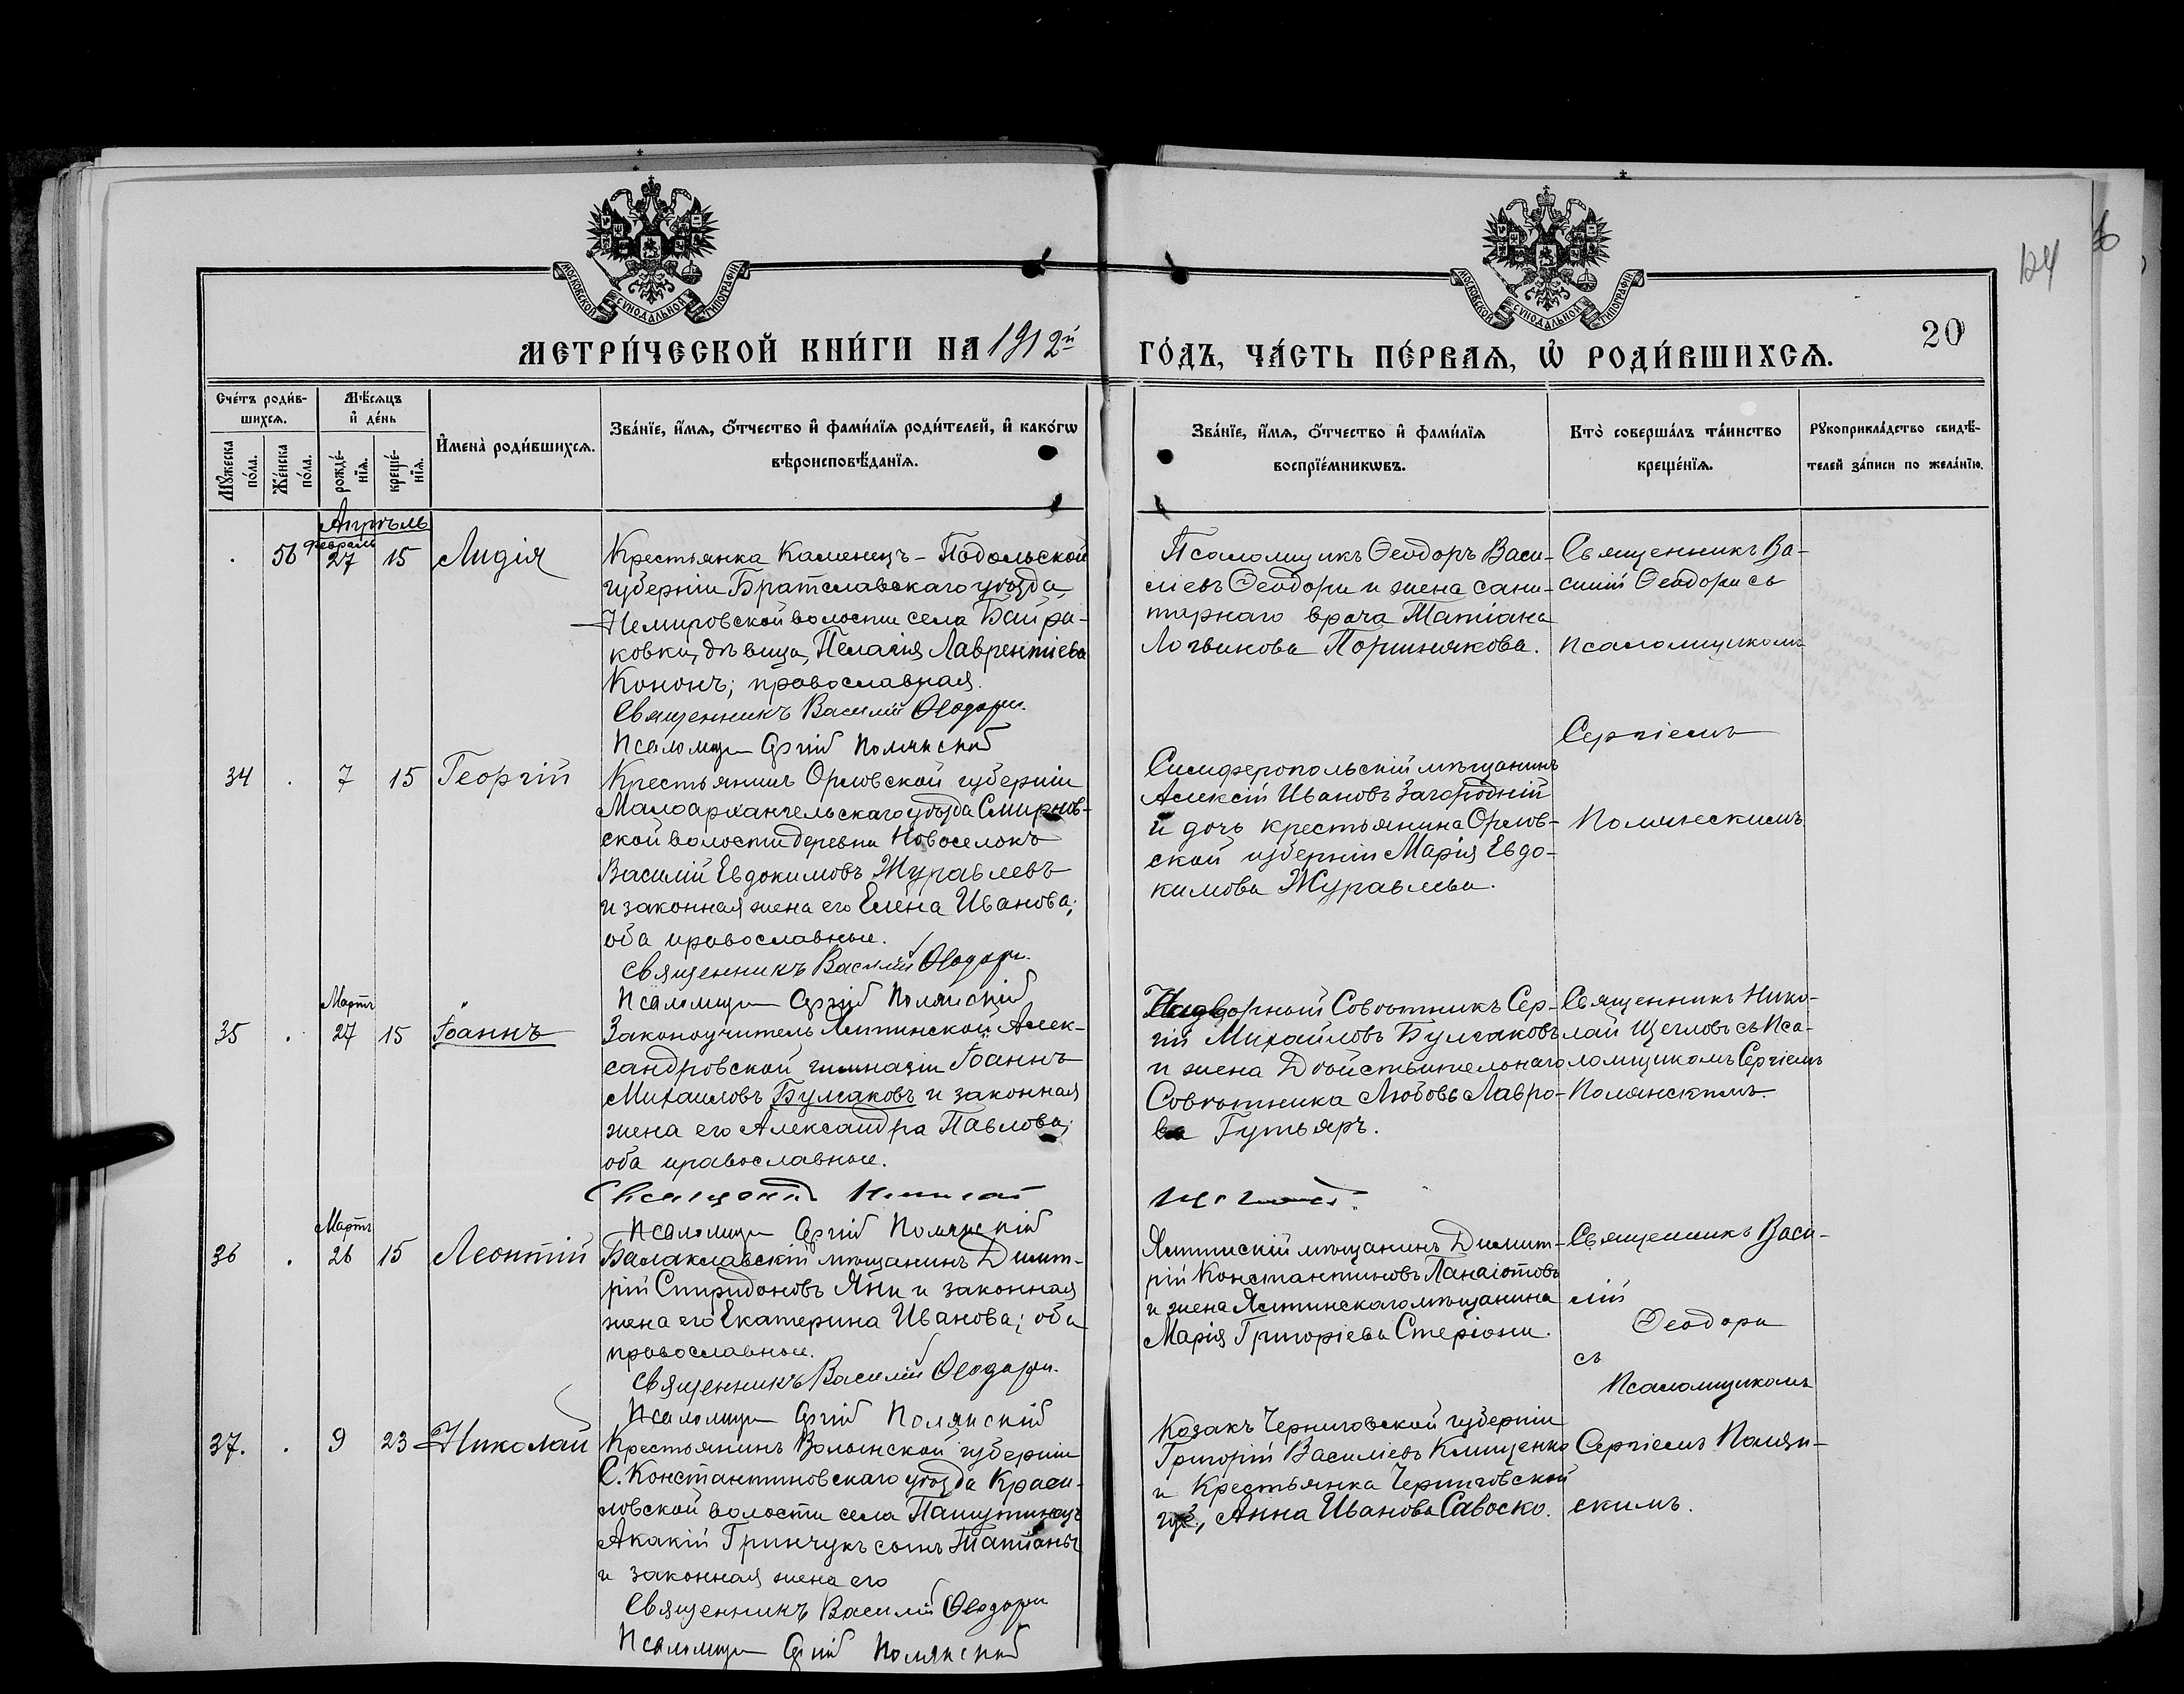 124
20
МОСКОВСКОЙ СѴНОДАЛЬНОЙ ТИПОГРАФІИ
МОСКОВСКОЙ СѴНОДАЛЬНОЙ ТИПОГРАФІИ
МЕТРИ́ЧЕСКОЙ КНИ́ГИ НА 1912й ГО́ДЪ, ЧА́СТЬ ПЕ́РВАѦ, Ѡ҆ РОДИ́ВШИХСѦ.
Сче́тъ роди́в-
шихсѧ.
Мꙋ́жеска по́ла.
Же́нска по́ла.
Мѣ́сѧцъ
и҆ де́нь
рожде́-
нїѧ.
креще́-
нїѧ.
И҆мена̀ роди́вшихсѧ.
Зва́нїе, и҆́мѧ, ѻ҆́тчество и҆ фами́лїѧ роди́телей, и҆ како́гѡ
вѣроисповѣ́данїѧ.
Зва́нїе, и҆́мѧ, ѻ҆́тчество и҆ фами́лїѧ
воспрїе́мникѡвъ.
Кто̀ соверша́лъ та́инство
креще́нїѧ.
Рꙋкоприкла́дство свидѣ́-
телей за́писи по жела́нїю.
Апрѣль
Февраль
56 27 15 Лидія
Крестьянка Каменецъ-Подольской
губерніи Братславскаго уѣзда
Немировской волости села Байра-
ковки, дѣвица, Пелагія Лаврентіева
Кононъ; православная.
Священникъ Василій Ѳеодори.
Псаломщ Сергій Полянскій
Псаломщикъ Ѳеодоръ Васи-
ліевъ Ѳеодори и жена сани-
тарнаго врача Татіана
Логвинова Поршнякова.
Священникъ Ва-
силій Ѳеодори съ
псаломщикомъ
Сергіемъ
Полянскимъ
34 7 15 Георгій
Крестьянинъ Орловской губерніи
Малоархангельскаго уѣзда Смирнов-
ской волости деревни Новоселокъ
Василій Евдокимовъ Журавлевъ
и законная жена его Елена Иванова;
оба православные.
Священникъ Василій Ѳеодори.
Псаломщ Сергій Полянскій
Симферопольскій мѣщанинъ
Алексій Ивановъ Загородній
и дочь крестьянина Орлов-
ской губерніи Марія Евдо-
кимова Журавлева.
Мартъ
35 27 15 Іоаннъ
Законоучитель Ялтинской Алек-
сандровской гимназіи Іоаннъ
Михаиловъ Булгаковъ и законная
жена его Александра Павлова;
оба православные.
Священникъ Николай Щегловъ.
Псаломщ Сергій Полянскій
Надворный Совѣтникъ Сер-
гій Михайловъ Булгаковъ
и жена Дѣйствительнаго
Совѣтника Любовь Лавро-
ва Гутьяръ.
Священникъ Нико-
лай Щегловъ съ пса-
ломщикомъ Сергіемъ
Полянскимъ.
Мартъ
36 26 15 Леонтій
Балаклавскій мѣщанинъ Димит-
рій Спиридоновъ Яни и законная
жена его Екатерина Иванова; оба
православные.
Священникъ Василій Ѳеодори.
Псаломщ Сергій Полянскій
Ялтинскій мѣщанинъ Димит-
рій Константиновъ Панаіотовъ
и жена Ялтинскаго мѣщанина
Марія Григоріева Стеріони.
Священникъ Васи-
лій
Ѳеодори
съ
Псаломщикомъ
Сергіемъ Полян-
скимъ.
37. 9 23 Николай
Крестьянинъ Волынской губерніи
С. Константиновскаго уѣзда Краси-
ловской волости села Пашутинец
Акакій Гринчукъ сынъ Татіаны
и законная жена его
Священникъ Василій Ѳеодори
Псаломщ Сергій Полянскій
Козакъ Черниговской губерніи
Григорій Василіевъ Клищенко
и Крестьянка Черниговской
губ., Анна Иванова Савоско.